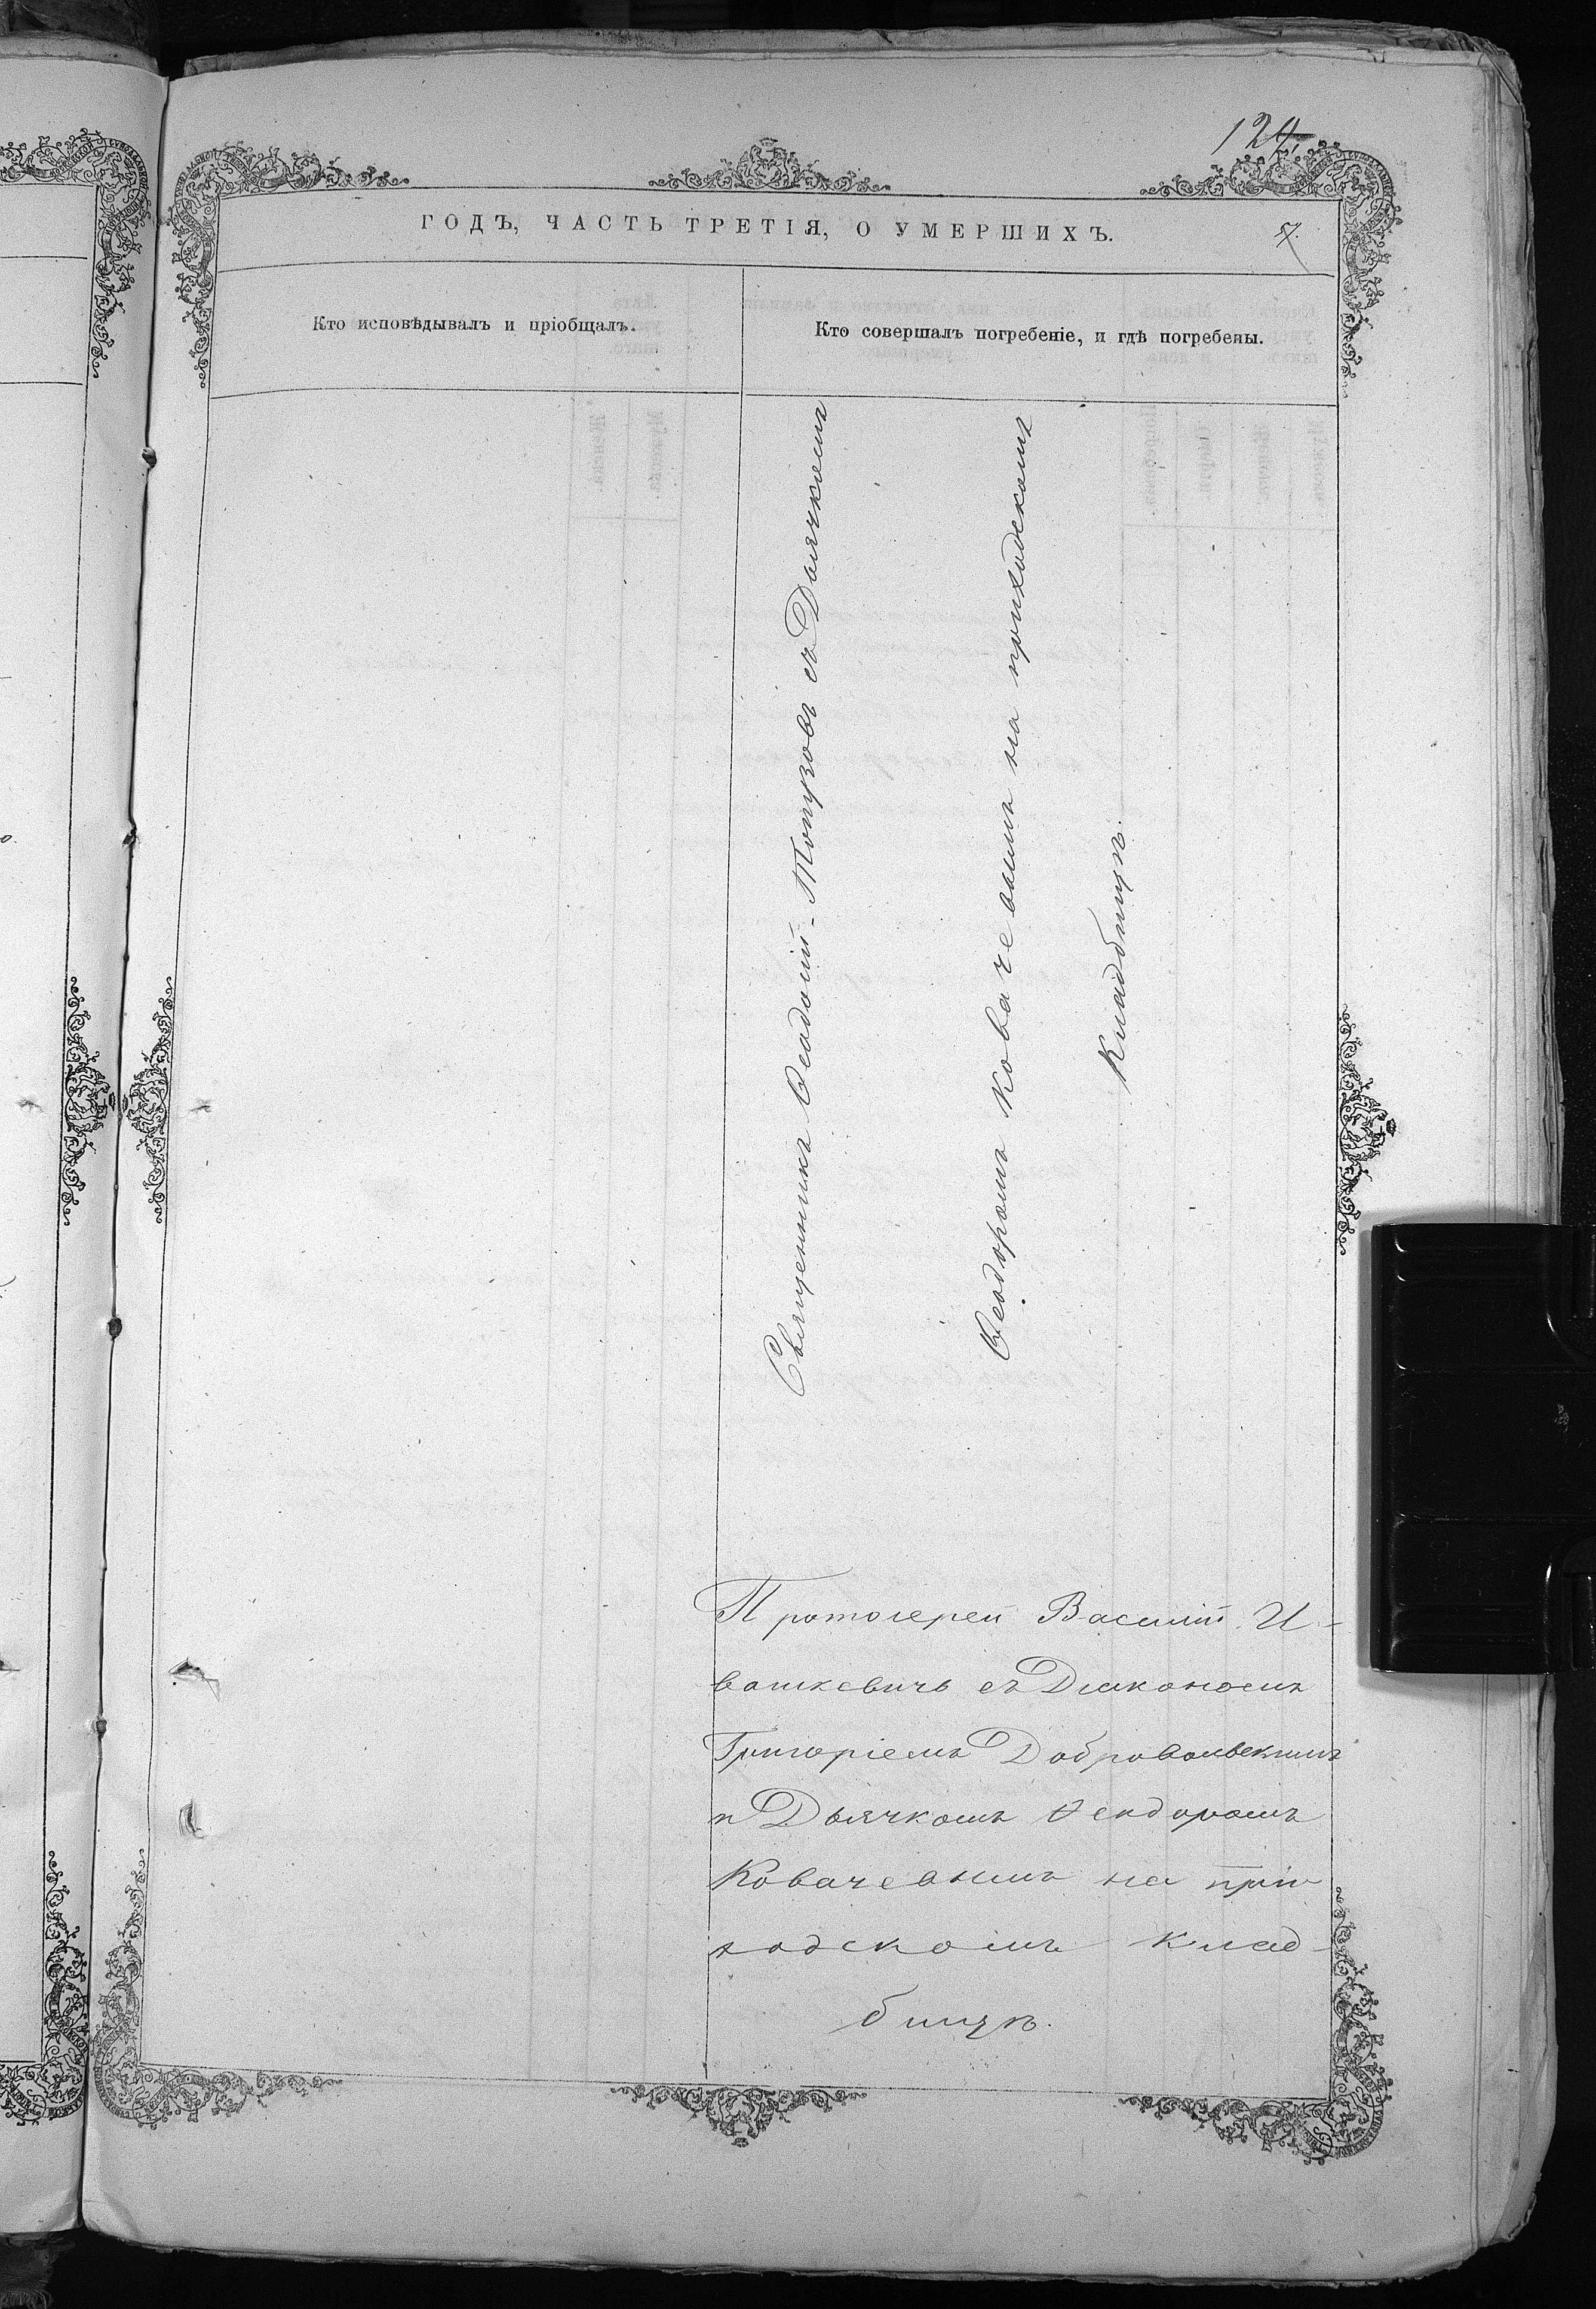 124.
ГОДЪ, ЧАСТЬ ТРЕТІЯ, О УМЕРШИХЪ.
Кто исповѣдывалъ и пріобщалъ.
Кто совершалъ погребеніе, и гдѣ погребены.
Священникъ Ѳеодосій Топузовъ съ Дьячкомъ
Ѳеодоромъ Ковачевымъ на приходскомъ
Кладбищѣ.
Протоіерей Василій И-
вашкевичъ съ Діакономъ
Григоріемъ Добровольскимъ
и Дьячкомъ Ѳеодоромъ
Ковачевымъ на при
ходскомъ клад-
бищѣ.